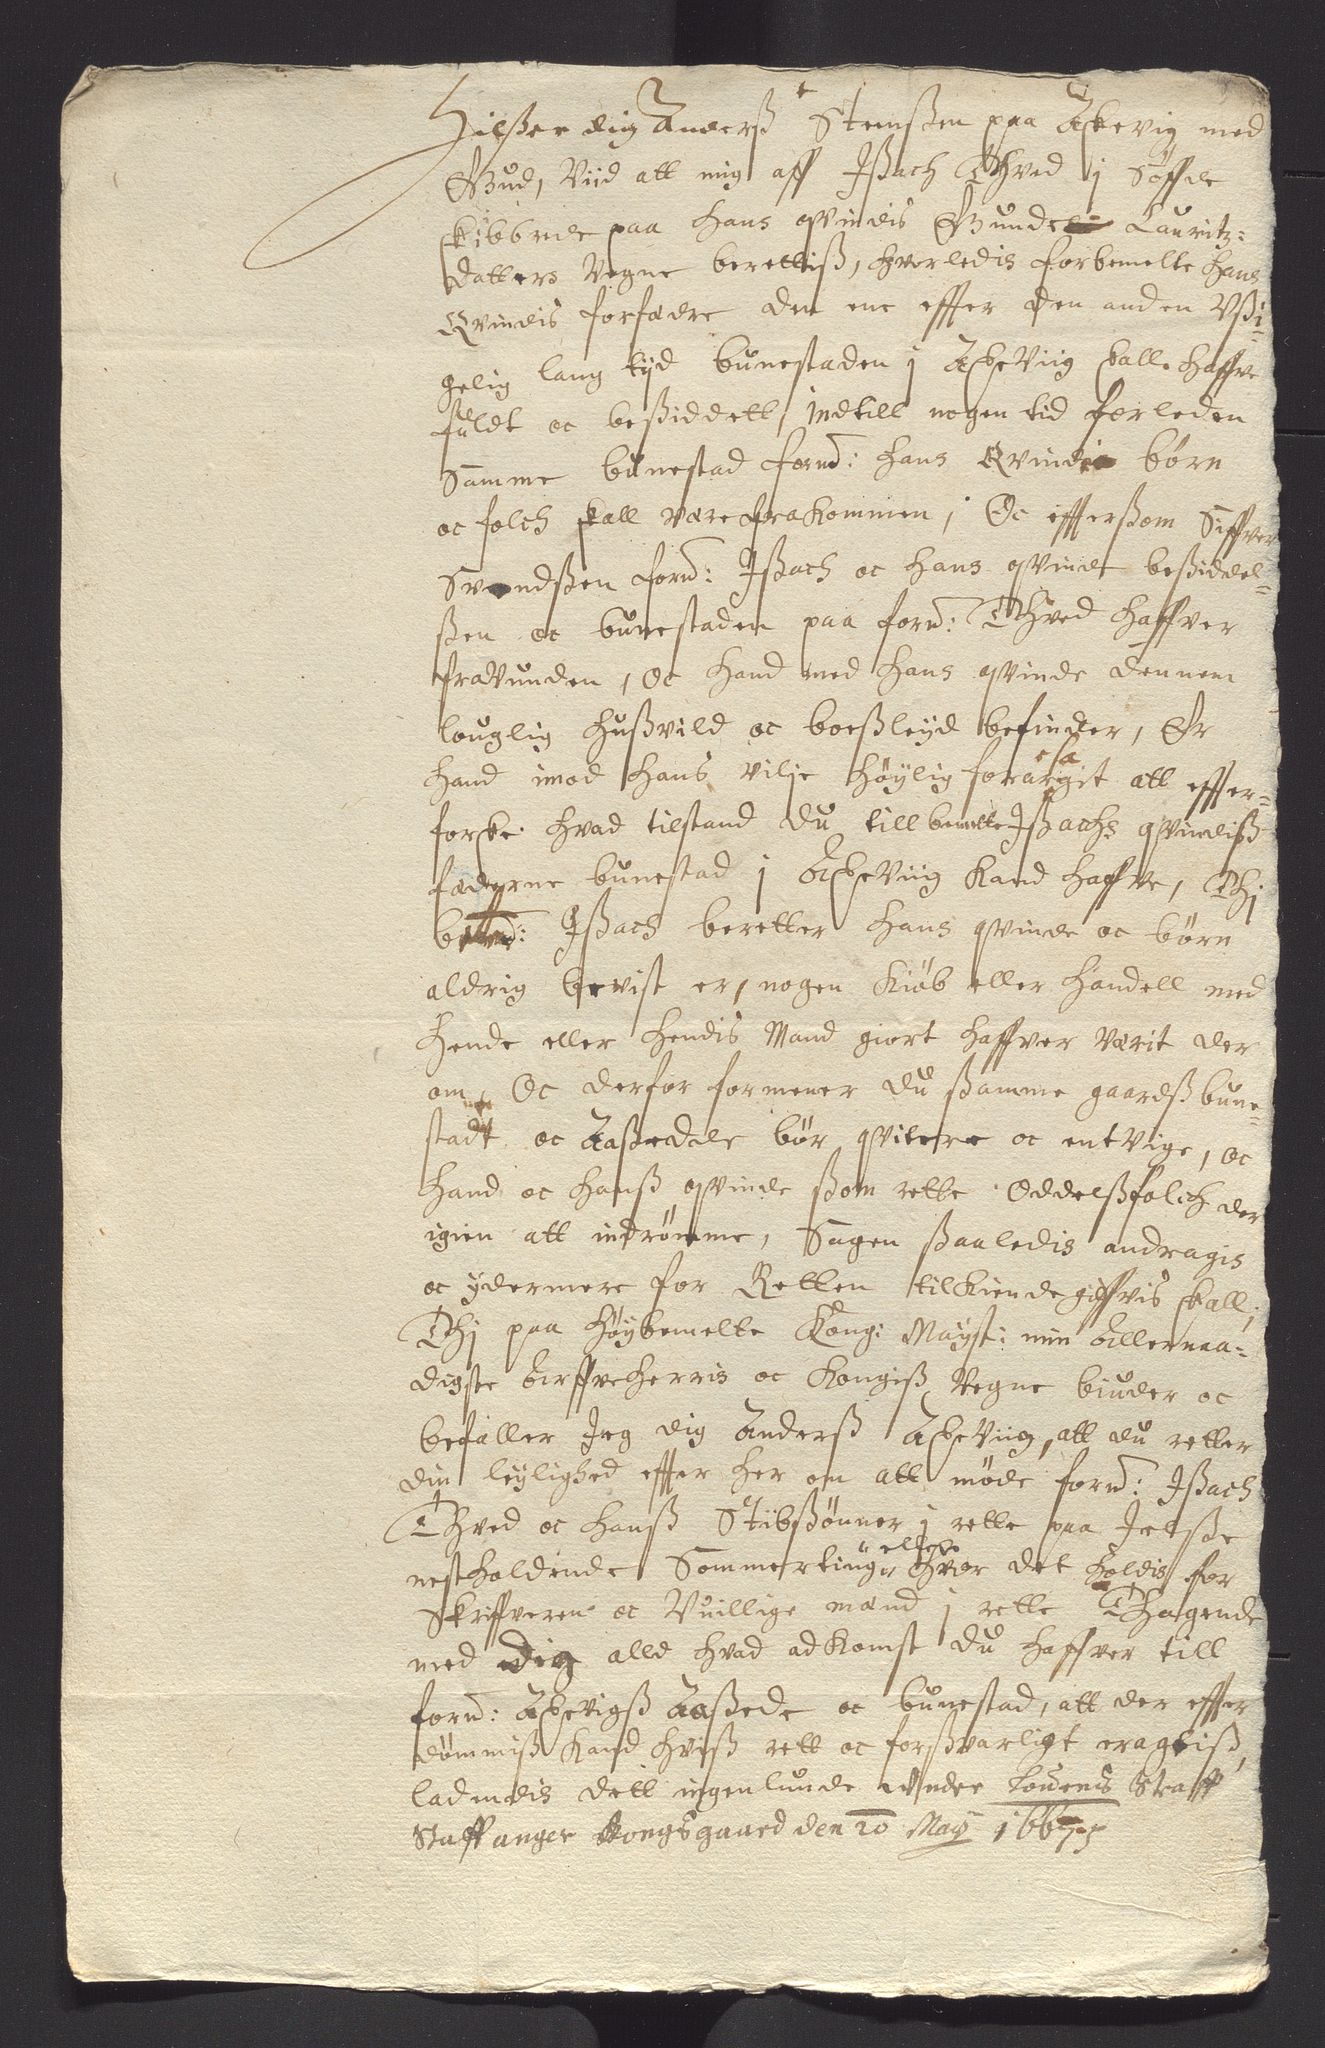 Hilßer dig Anderß Stenßen paa Askevig med
Gud, Viid att mig aff Jßach Thved j Søffde
skibbrede paa hans qvindis Gunde Lauritz:
datters Vegne berettiß, hvorledis forbemelte hans
Qvindis forfædre den ene effter den anden Vßi-
gelig lang tijd bunestaden j AskeViig skall haffve
fuldt oc beßiddett, indtill nogen tid forleden
Samme bunestad fornd: hans Qvindis børn
oc folch skall være frakommen, Oc effterßom Siffver
Svendßen fornd: Jßach oc hans qvinde beßiddel-
ßen oc bunestaden paa fornd: Thved haffver
fravunden, Oc hand med hans qvinde dennem
louglig hußvild oc boeßleyd befinder, Er
hand imod hans vilje høylig forarsagit att effter-
forske hvad tilstand du till bemelte Jßachs qvindiß
fæderne bunestad j AskeViig Kand haffve, Thj
bemd: Jßach beretter hans qvinde oc børn
aldrig bevist er, nogen Kiøb eller handell med
hende eller hendis Mand giort haffver værit der
om, Oc derfor formener du ßamme gaardß bune-
stadt oc Aaßæde bør qvitere oc entvige, oc
hand oc hanß qvinde ßom rette Oddelßfolch der
igien att indrømme, Sagen ßaaledis andragis
oc ydermere for Retten tilkiende giffvis skall,
Thj paa høybemelte Kong: Mayst: min Allernaa-
digste Arffveherris oc Kongiß Vegne biuder oc
befaller Jeg dig Anderß AskeViig, att du retter
din leylighed effter her om att møde fornd: Jßach
Thved oc hanß Stibßønner j rette paa Jelße
nestholdende Sommerting eller hvor det holdis for
Skriffveren oc Vuillige mænd j rette Thagende
med dig alld hvad adkomst du haffver till
fornd: Askevigß Aaßede oc bunestad, att der effter
dømmiß Kand hviß rett oc forßvarligt eragtiß,
ladendis dett ingenlunde Under Louens Straff
Staffanger Kongsgaard den 20 May 1667